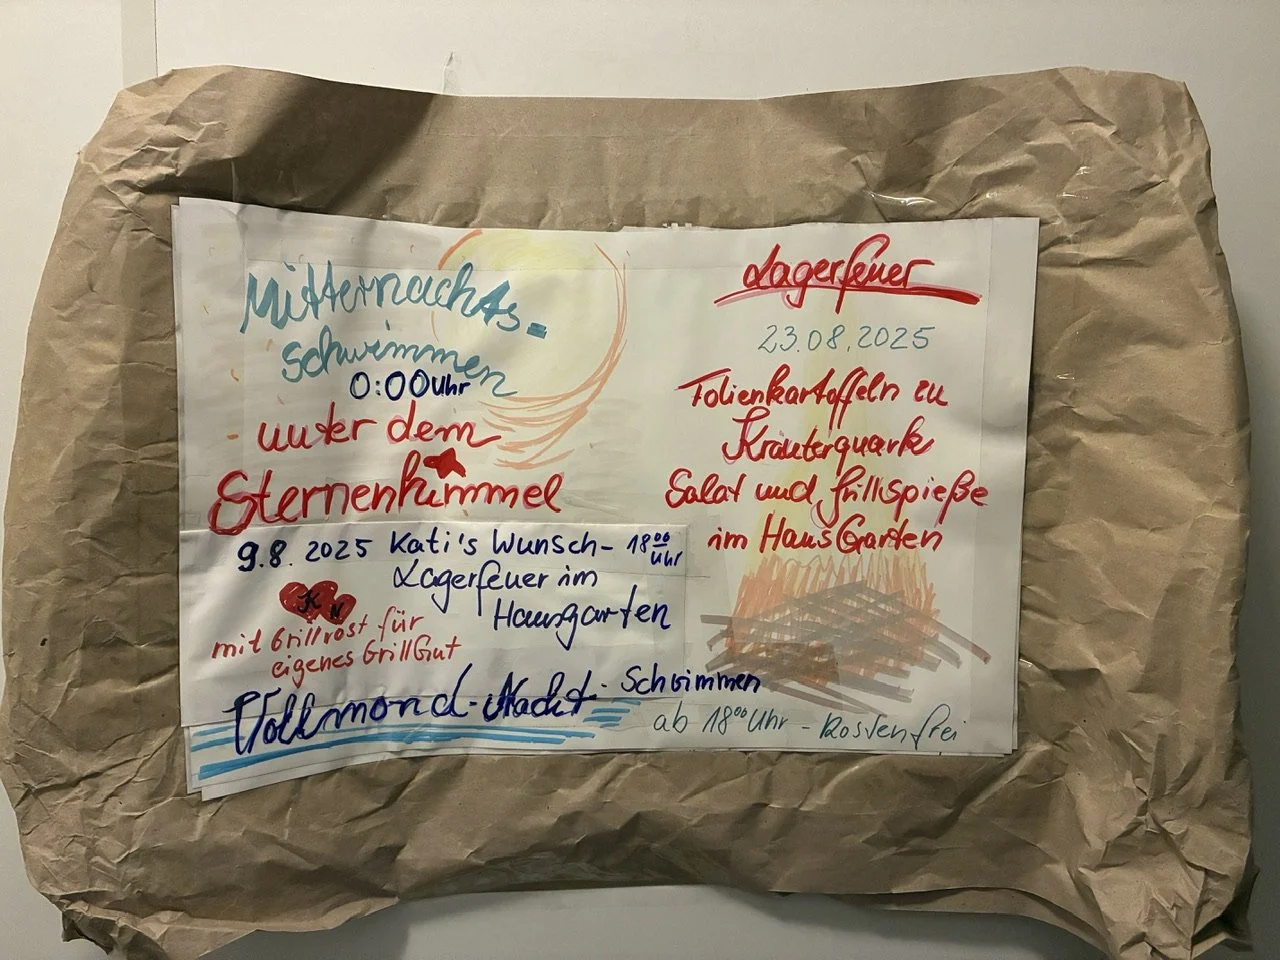 Mitternachts-
schwimmen
0:00 Uhr
unter dem
Sternenhimmel
9.8. 2025 Kati's Wunsch- 18⁰⁰ Uhr
Lagerfeuer im
Hausgarten
K N
mit Grillrost für
eigenes GrillGut
Vollmond-Nacht-Schwimmen
Lagerfeuer
23.08.2025
Folienkartoffeln zu
Kräuterquark
Salat und Grillspieße
im HausGarten
ab 18⁰⁰ Uhr - Kostenfrei